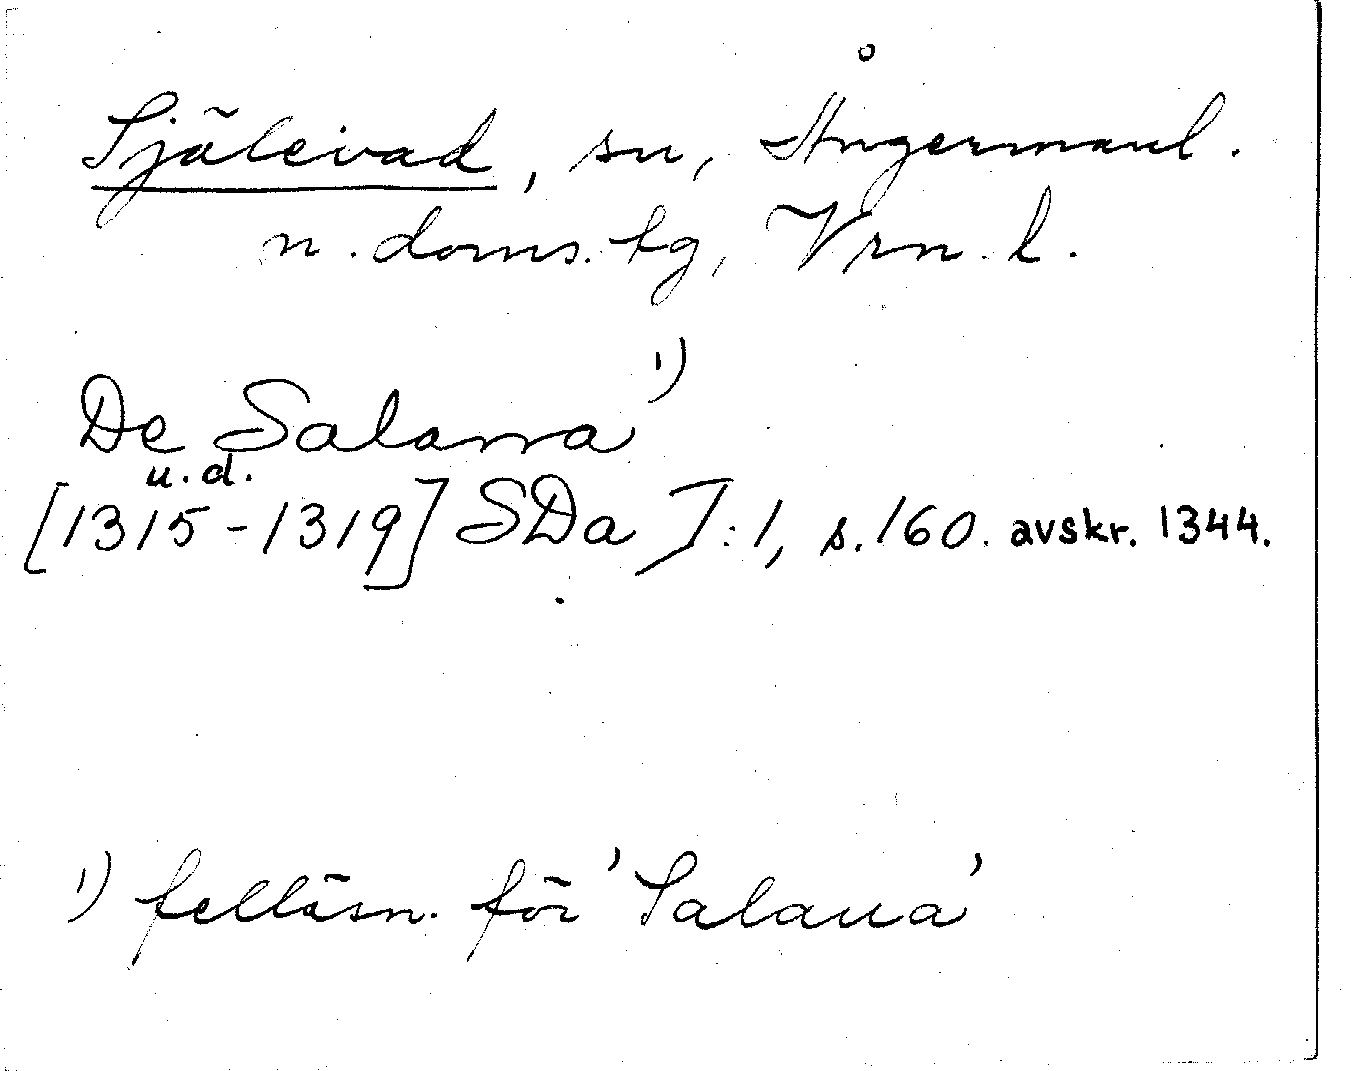 Själevad, sn, Ångermanl.
n. doms. tg, Vrn. l.
De Salanna ¹)
u.d.
[1315-1319] SDa I:1, s. 160. avskr. 1344.
¹) felläsn. för 'Salaua'